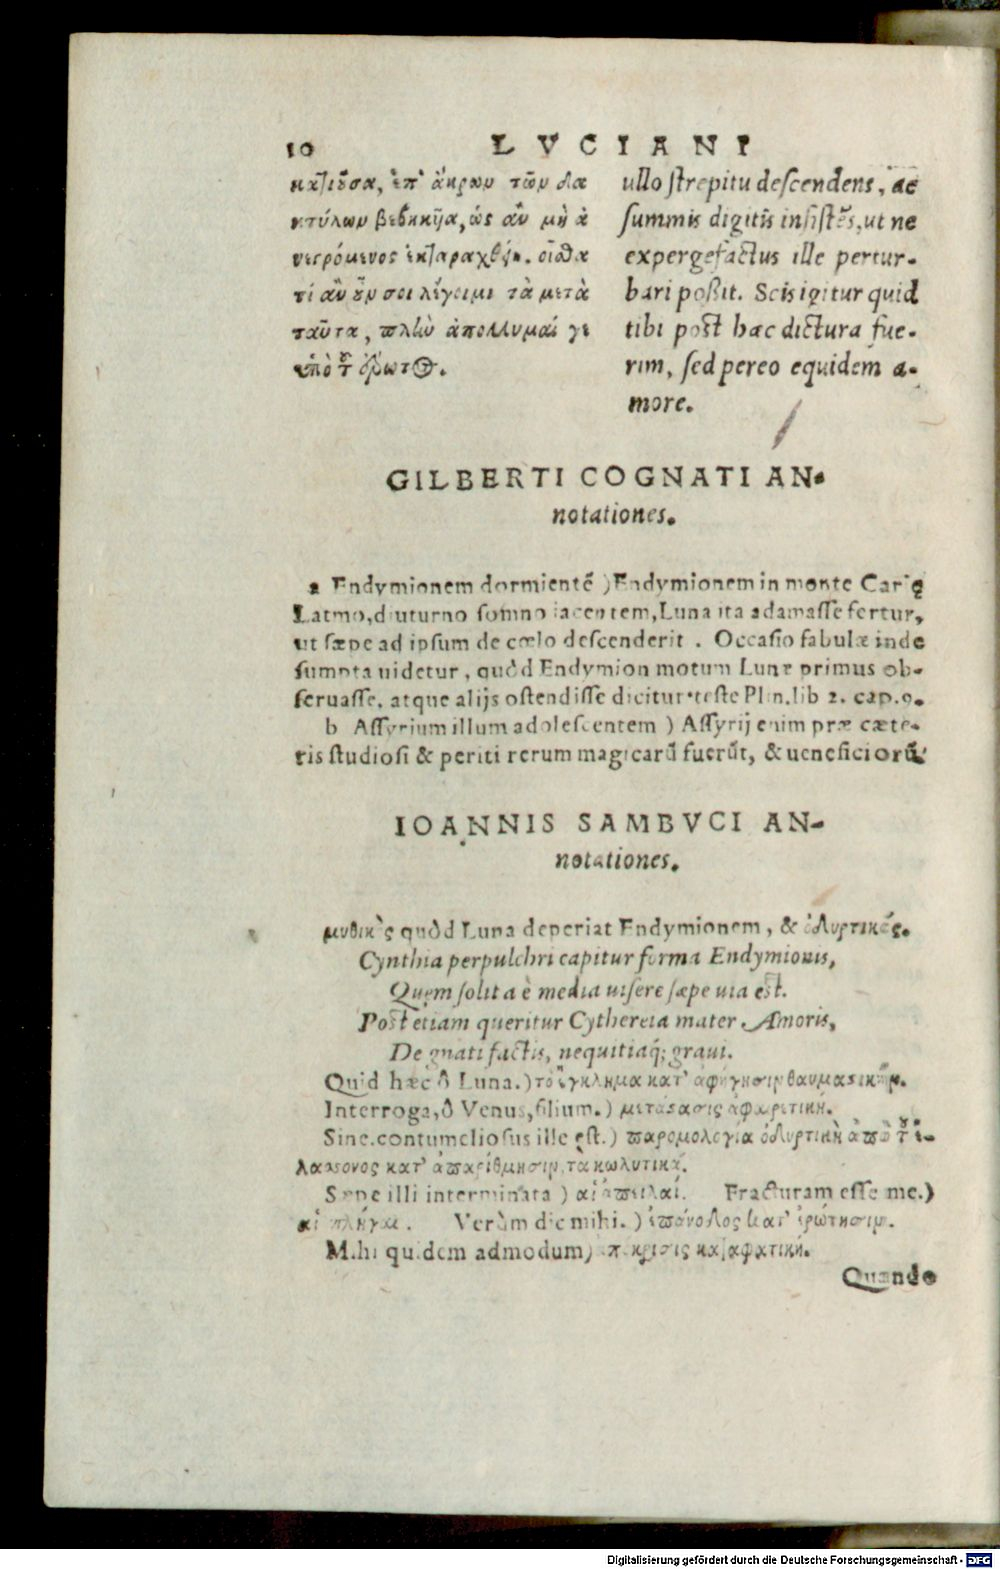 10 LVCIANI
κατιοῦσα, ἐπ' ἄκρων τῶν δα
κτύλων βεβηκῆα, ὡς ἂν μὴ ἀ
νεγρόμενος ἐκταραχθῇ. οἶσθα
τί ἂν οὖν σοι λέγοιμι τὰ μετὰ
ταῦτα, πλὴν ἀπόλλυμαί γε
ὑπὸ τοῦ ἔρωτος.
ullo strepitu descendens, ac
summis digitis insistẽs, ut ne
expergefactus ille pertur-
bari poßit. Scis igitur quid
tibi post hæc dictura fue-
rim, sed pereo equidem a-
more.
GILBERTI COGNATI AN-
notationes.
a Endymionem dormientẽ ) Endymionem in monte Carię
Latmo, diuturno somno iacentem, Luna ita adamasse fertur,
ut sæpe ad ipsum de cœlo descenderit . Occasio fabulæ inde
sumpta uidetur, quòd Endymion motum Lunæ primus ob-
seruasse, atque alijs ostendisse dicitur teste Plin. lib 2. cap. 9.
b Assyrium illum adolescentem ) Assyrij enim præ cæte-
ris studiosi & periti rerum magicarũ fuerũt, & ueneficiorũ
IOANNIS SAMBVCI AN-
notationes.
μυθικῶς quòd Luna depereat Endymionem, & ὀδυρτικῶς.
Cynthia perpulchri capitur forma Endymionis,
Quem solita è media uisere sæpe uia est.
Post etiam queritur Cythereia mater Amoris,
De gnati factis, nequitiaq; graui.
Quid hæc ô Luna.) τὸ ἔγκλημα κατ' ἀφήγησιν θαυμαστικήν.
Interroga, ô Venus, filium.) μετάστασις ἀφαιρετική.
Sine. contumeliosus ille est.) παρομολογία ὀδυρτικὴ ἀπὸ τοῦ ἐ-
λάσσονος κατ' ἀπαρίθμησιν, τὰ κωλυτικά.
Sæpe illi interminata ) αἱ ἀπειλαί. Fracturam esse me.)
αἱ πληγαί. Verùm dic mihi.) ἐπάνοδος κατ' ἐρώτησιν.
Mihi quidem admodum) ἀπόκρισις καταφατική.
Quando
Digitalisierung gefördert durch die Deutsche Forschungsgemeinschaft - DFG